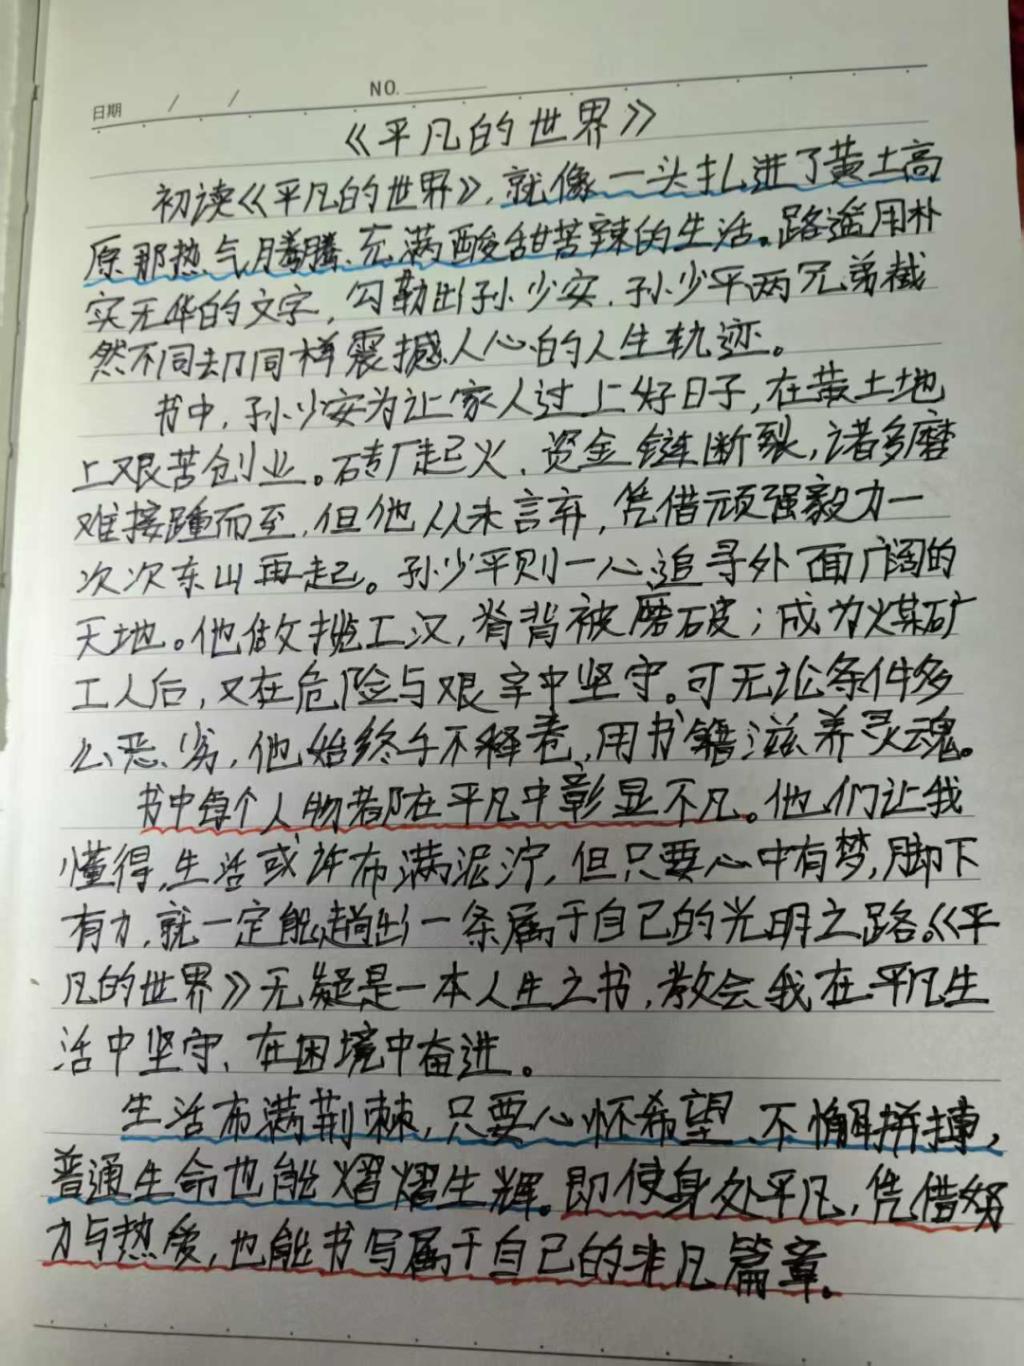 日期 / / NO.
《平凡的世界》
初读《平凡的世界》,就像一头扎进了黄土高
原那热气腾腾、充满酸甜苦辣的生活。路遥用朴
实无华的文字,勾勒出孙少安、孙少平两兄弟截
然不同却同样震撼人心的人生轨迹。
书中,孙少安为让家人过上好日子,在黄土地
上艰苦创业。砖厂起火、资金链断裂,诸多磨
难接踵而至,但他从未言弃,凭借顽强毅力一
次次东山再起。孙少平则一心追寻外面广阔的
天地。他做揽工汉,脊背被磨破;成为煤矿
工人后,又在危险与艰辛中坚守。可无论条件多
么恶劣,他始终手不释卷,用书籍滋养灵魂。
书中每个人物都在平凡中彰显不凡。他们让我
懂得,生活或许布满泥泞,但只要心中有梦,脚下
有力,就一定能趟出一条属于自己的光明之路。《平
凡的世界》无疑是一本人生之书,教会我在平凡生
活中坚守、在困境中奋进。
生活布满荆棘,只要心怀希望、不懈拼搏,
普通生命也能熠熠生辉。即使身处平凡,凭借努
力与热爱,也能书写属于自己的非凡篇章。